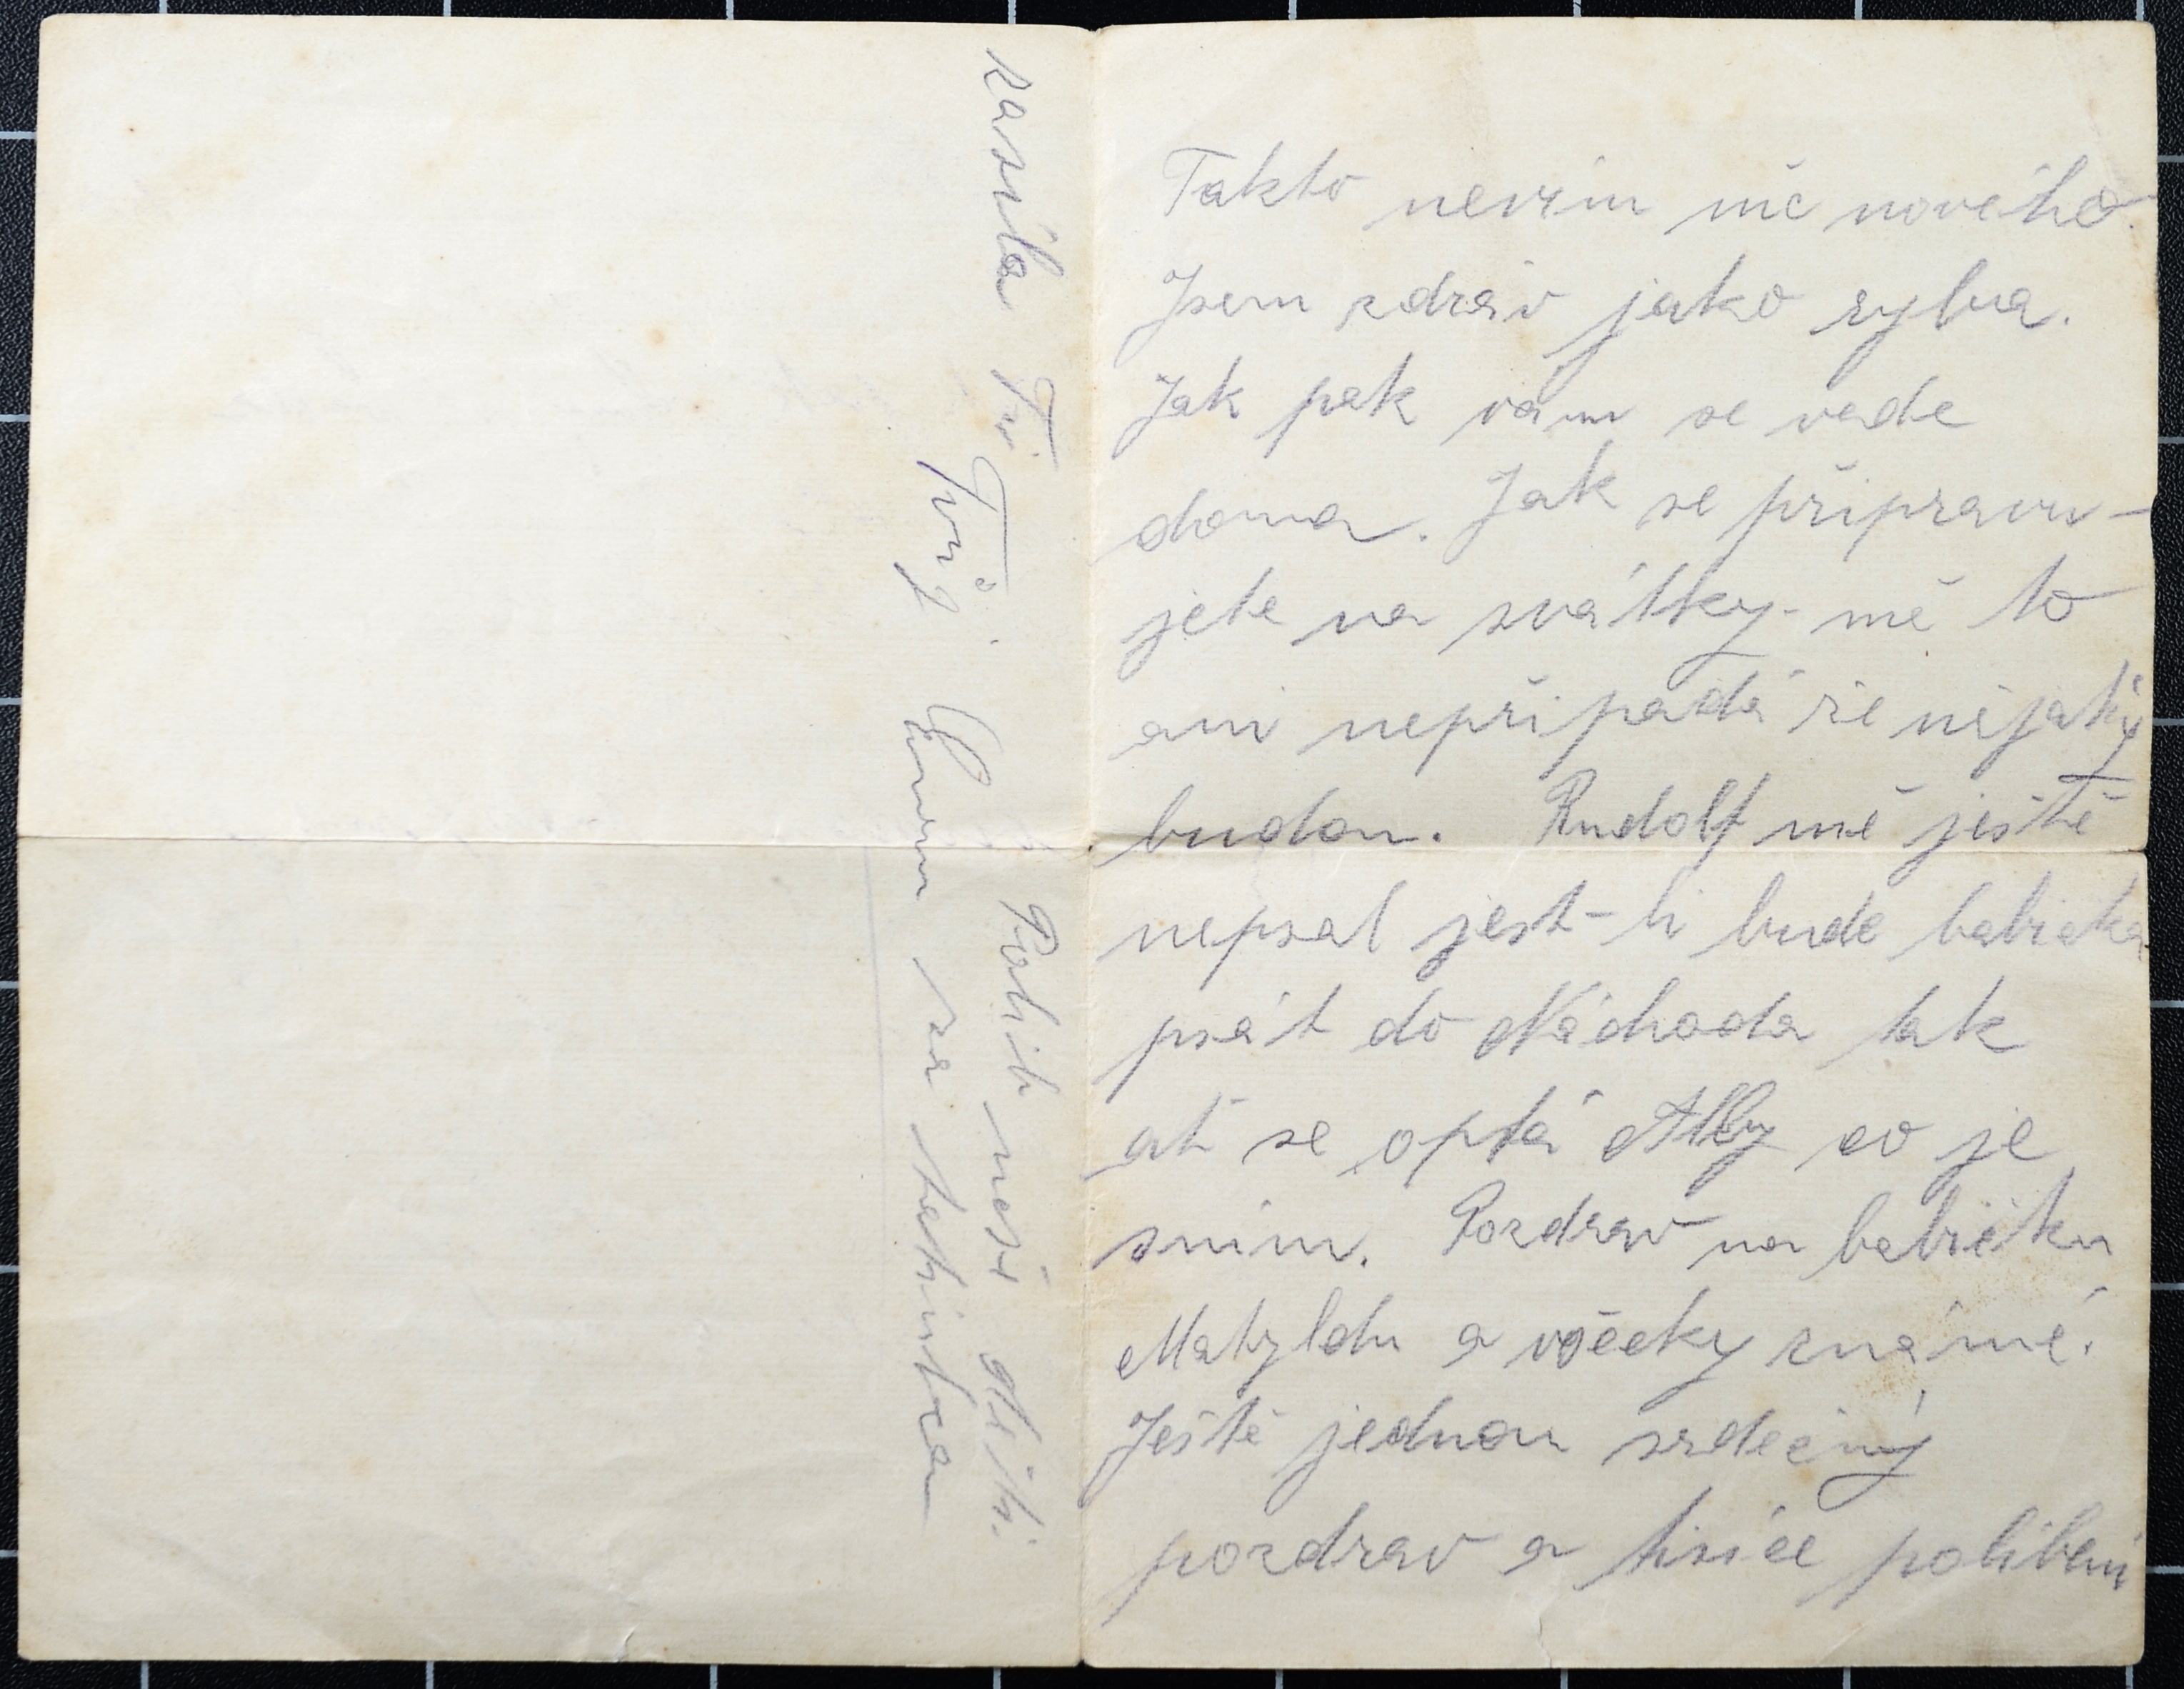 Takto nevím nic nového.
Jsem zdráv jako ryba.
Jak pak vám se vede
doma. Jak se připravu-
jete na svátky- mě to
ani nepřipadá že nějaký
budou. Rudolf mě ještě
nepsal jest-li bude babička
psát do Náchoda tak
ať se optá Ally co je
sním. Pozdrav na babičku
Matyldu a všecky známé.
Ještě jednou srdečný
pozdrav a tisíce políbení
zasílá Ti
Tvůj
Polib naše děti.
za tatínka